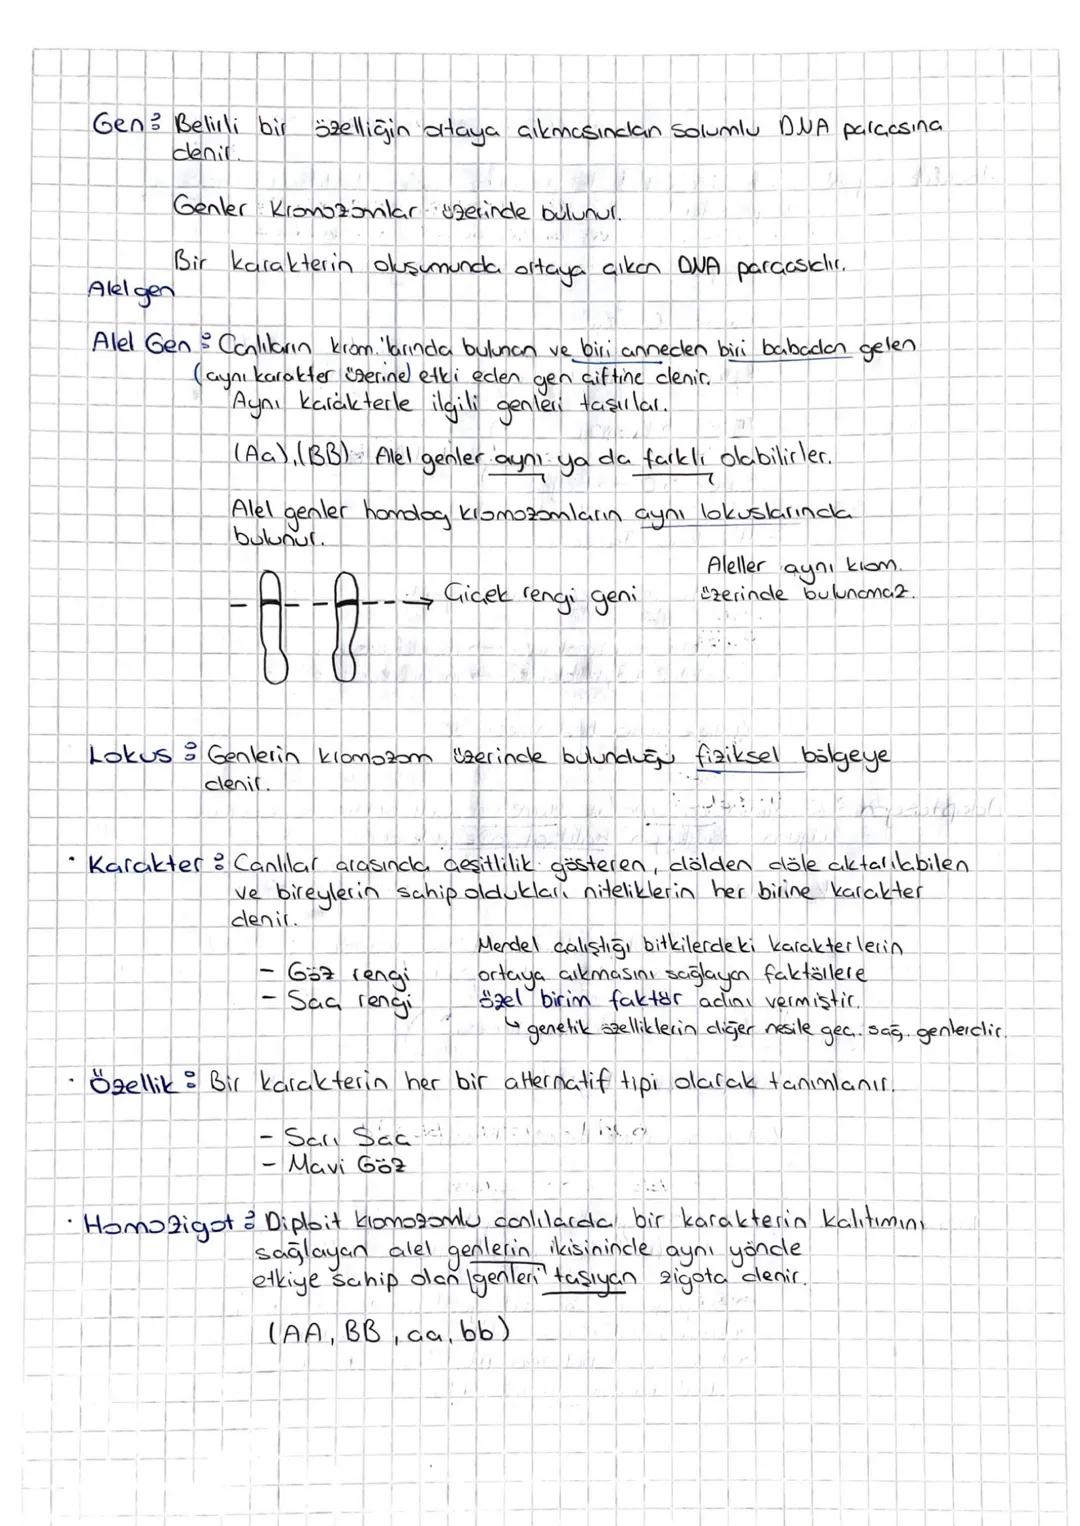 Gen: Belirli bir özelliğin ortaya çıkmasından sorumlu DNA parçasına
denir.
Genler Kromozomlar üzerinde bulunur.
Bir karakterin oluşumunda ortaya çıkan DNA parçasıdır.
Alel gen
Alel Gen: Canlıların krom.'larında bulunan ve biri anneden biri babadan gelen
(aynı karakter üzerine) etki eden gen çiftine denir.
Aynı karakterle ilgili genleri taşırlar.
(Aa),(BB) Alel genler aynı ya da farklı olabilirler.
Alel genler homolog kromozomların aynı lokuslarında
bulunur.
Aleller aynı krom.
üzerinde bulunamaz.
Çiçek rengi geni
Lokus: Genlerin kromozom üzerinde bulunduğu fiziksel bölgeye
denir.
· Karakter: Canlılar arasında çeşitlilik gösteren, dölden döle aktarılabilen
ve bireylerin sahip oldukları niteliklerin her birine karakter
denir.
- Göz rengi
- Saç rengi
Mendel çalıştığı bitkilerdeki karakterlerin
ortaya çıkmasını sağlayan faktörlere
özel birim faktör adını vermiştir.
↳ genetik özelliklerin diğer nesile geç. sağ. genlerdir.
· Özellik: Bir karakterin her bir alternatif tipi olarak tanımlanır.
- Sarı Saç
- Mavi Göz
· Homozigot: Diploit kromozomlu canlılarda bir karakterin kalıtımını
sağlayan alel genlerin ikisininde aynı yönde
etkiye sahip olan genleri taşıyan zigota denir.
(AA, BB, aa, bb)